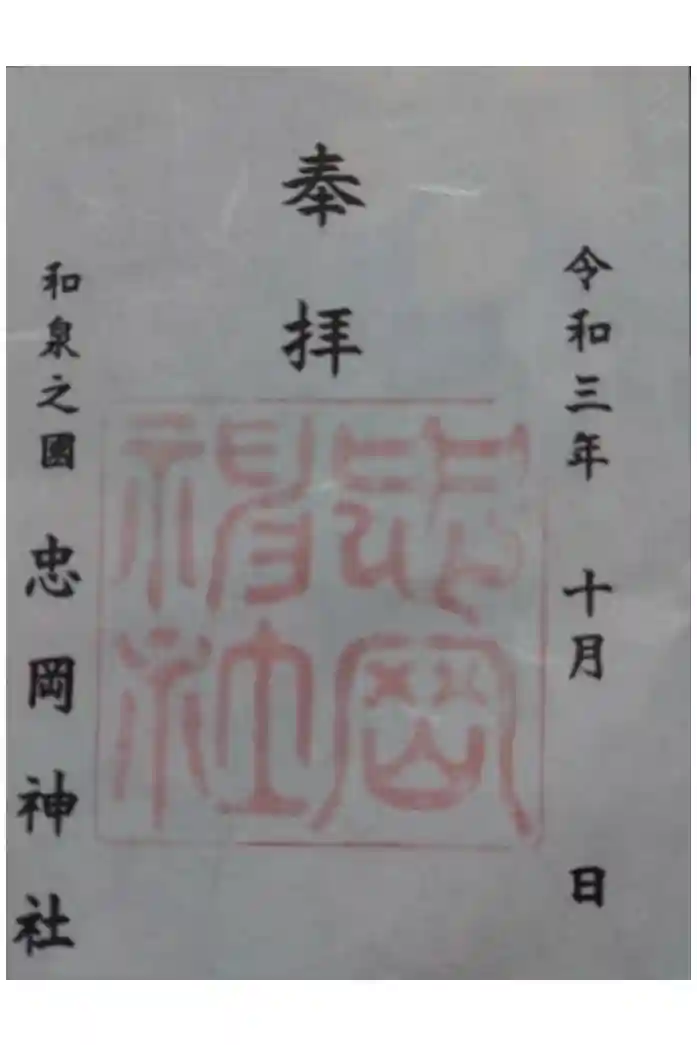 令和三年 十月 日
奉拝
和泉之國 忠岡神社
忠岡
神社